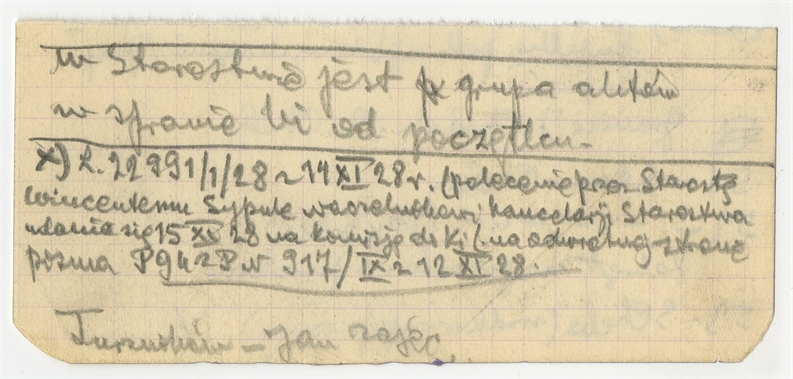 w Starostwie jest grupa aktów
w sprawie Ki od początku.
x) L. 22991/1/28 z 14 XI 28 r. (polecenie przez Starostę
Wincentemu Sypule naczelnikowi kancelarji Starostwa
udania się 15 XI 28 na komisję do Ki (. na odwrotnej stronie
pisma P94 z P. N 917/IX z 12 XI 28.
Jan Zając